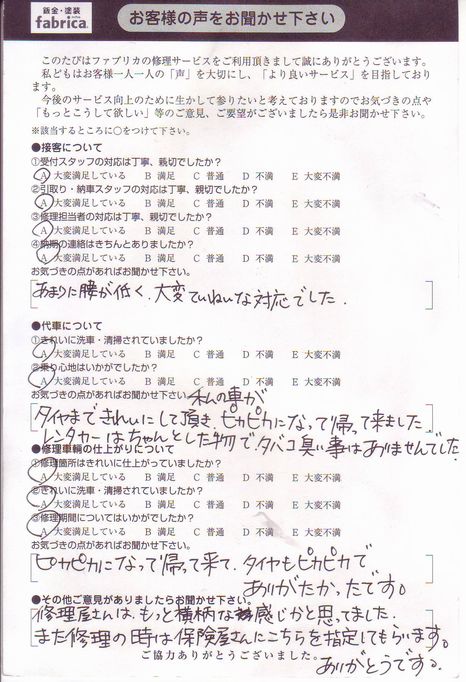 鈑金・塗装
fabrica.
お客様の声をお聞かせ下さい
このたびはファブリカの修理サービスをご利用頂きまして誠にありがとうございます。
私どもはお客様一人一人の「声」を大切にし、「より良いサービス」を目指しており
ます。
今後のサービス向上のために生かして参りたいと考えておりますのでお気づきの点や
「もっとこうして欲しい」等のご意見、ご要望がございましたら是非お聞かせ下さい。
※該当するところに○をつけて下さい。
●接客について
①受付スタッフの対応は丁寧、親切でしたか?
A 大変満足している B 満足 C 普通 D 不満 E 大変不満
②引取り・納車スタッフの対応は丁寧、親切でしたか?
A 大変満足している B 満足 C 普通 D 不満 E 大変不満
③修理担当者の対応は丁寧、親切でしたか?
A 大変満足している B 満足 C 普通 D 不満 E 大変不満
④納期の連絡はきちんとありましたか?
A 大変満足している B 満足 C 普通 D 不満 E 大変不満
お気づきの点があればお聞かせ下さい。
あまりに腰が低く、大変ていねいな対応でした。
●代車について
①きれいに洗車・清掃されていましたか?
A 大変満足している B 満足 C 普通 D 不満 E 大変不満
②乗り心地はいかがでしたか?
A 大変満足している B 満足 C 普通 D 不満 E 大変不満
お気づきの点があればお聞かせ下さい。
私の車が
タイヤまできれいにして頂き、ピカピカになって帰って来ました
レンタカーはちゃんとした物で、タバコ臭い事はありませんでした
●修理車輌の仕上がりについて
①修理箇所はきれいに仕上がっていましたか?
A 大変満足している B 満足 C 普通 D 不満 E 大変不満
②きれいに洗車・清掃されていましたか?
A 大変満足している B 満足 C 普通 D 不満 E 大変不満
③修理期間についてはいかがでしたか?
A 大変満足している B 満足 C 普通 D 不満 E 大変不満
お気づきの点があればお聞かせ下さい。
ピカピカになって帰って来て、タイヤもピカピカで
ありがたかったです。
●その他ご意見がありましたらお聞かせ下さい。
修理屋さんは、もっと横柄な感じかと思ってました。
また修理の時は保険屋さんにこちらを指定してもらいます。
ご協力ありがとうございました。
ありがとうです。